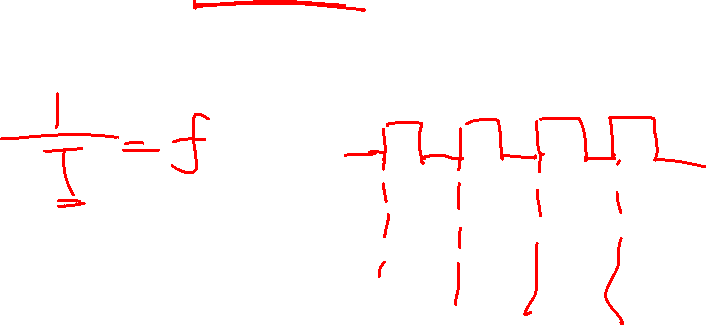 1/T = f